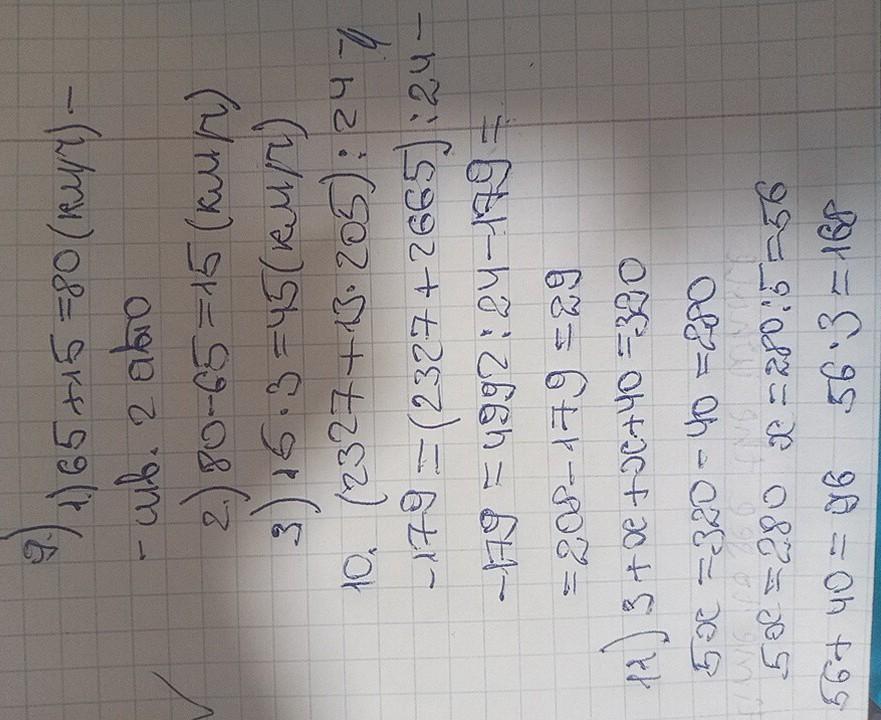 9.) 1.) 65 + 15 = 80 (км/ч) –
- шв. 2 авто
2.) 80 - 65 = 15 (км/ч)
3.) 15 · 3 = 45 (км/ч)
10. (2327 + 13 · 205) : 24 –
- 179 = (2327 + 2665) : 24 –
- 179 = 4992 : 24 - 179 =
= 208 - 179 = 29
11) 3 + x + x + 40 = 320
5x = 320 - 40 = 280
5x = 280 x = 280 : 5 = 56
56 + 40 = 96 56 · 3 = 168